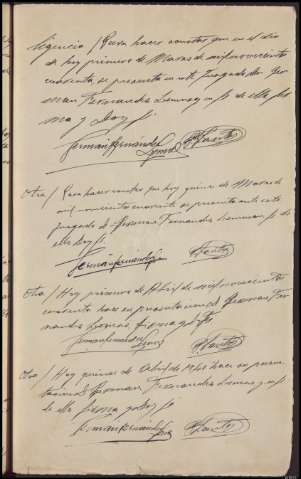 Diligencia / Para hacer constar que en el dia
de hoy primero de Marzo de mil novecientos
cuarenta se presenta en este Juzgado Don Ger
man Fernandez Lomas y en fe de ello fir
ma y doy fe
German Fernández
Lomas
Otra / Para hacer constar que hoy quince de Marzo de
mil novecientos cuarenta se presenta ante este
Juzgado D German Fernandez Lomas en fe de
ello doy fe
German Fernandez
Otra / Hoy primero de Abril de mil novecientos
cuarenta hace su presentacion D German Fer
nandez Lomas firma y doy fe
German Fernandez
Lomas
Otra / Hoy quince de Abril de 1940 hace su presen
tacion D German Fernandez Lomas y en fe
de ello firma y doy fe
German Fernandez